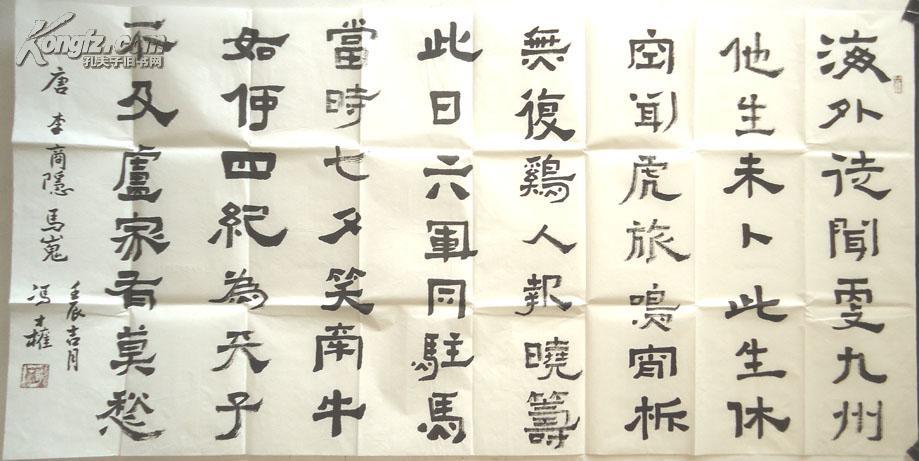 海外徒聞更九州
他生未卜此生休
空聞虎旅鳴宵柝
無復鷄人報曉籌
此日六軍同駐馬
當時七夕笑牽牛
如何四紀為天子
不及盧家有莫愁
唐李商隱馬嵬
壬辰吉月
馮
Kongfz.com
孔夫子旧书网